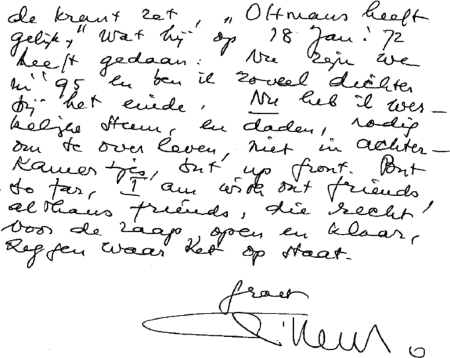 de krant zet, „Oltmans heeft
gelijk," wat hij op 28 Jan! 72
heeft gedaan. Nu zijn we
in '95 en ben ik zoveel dichter
bij het einde. Nu heb ik wer-
kelijke steun, en daden, nodig
om te overleven, niet in achter-
kamertjes, but up front. But
so far, I am with out friends
althans friends, die recht!
voor de raap, open en klaar,
zeggen waar het op staat.
groet
Willem